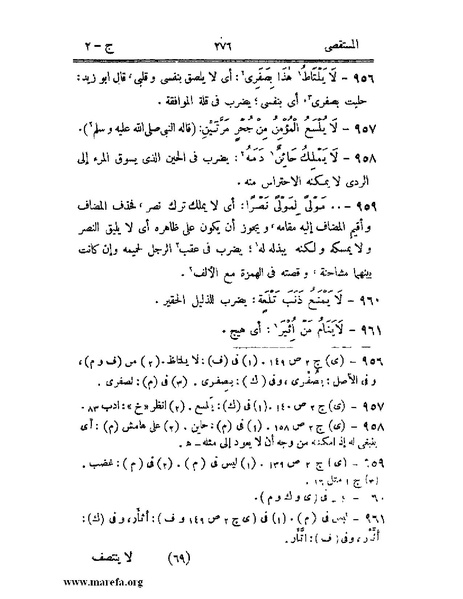 المستقصى ٢٧٦ ج - ٢
٩٥٦ - لَا يَلْتَاطُ¹ هٰذَا بِصَفَرِى²: أى لا يلصق بنفسى و قلبى، قال ابو زيد:
حلبت بصفرى³، أى بنفسى؛ يضرب فى قلة الموافقة.
٩٥٧ - لَا يُلْسَعُ¹ الْمُؤْمِنُ مِنْ جُحْرٍ مَرَّتَيْنِ: (قاله النبى صلى الله عليه و سلم²).
٩٥٨ - لَا يَمْلِكُ حَائِنٌ¹ دَمَهُ²: يضرب فى الحين الذى يسوق المرء إلى
الردى لا يمكنه الاحتراس منه.
٩٥٩ - .. مَوْلًى لِمَوْلًى نَصْرًا: أى لا يملك ترك نصر، فحذف المضاف
و أقيم المضاف إليه مقامه، و يجوز أن يكون على ظاهره أى لا يليق النصر
و لا يمسكه و لكنه يبذله له¹؛ يضرب فى عقب² الرجل لحيمه و إن كانت
بينهما مشاحنة، و قصته فى الهمزة مع الألف³.
٩٦٠ - لَا يَمْنَعُ ذَنَبَ تَلْعَةٍ: يضرب للذليل الحقير.
٩٦١ - لَا يَنَامُ مَنْ اُثْئِرَ¹: أى هيج.
٩٥٦ - (ى) ج ٢ ص ١٤٩. (١) فى (ف): لا يلتاظ. (٢) من (ف و م)،
و فى الأصل: بِصُفْرى، و فى (ك): بصفرى. (٣) فى (م): لصفرى.
٩٥٧ - (ى) ج ٢ ص ١٤٠. (١) فى (ك): يلسع. (٢) انظر «خ»: ادب ٨٣.
٩٥٨ - (ى) ج ٢ ص ١٥٨. (١) فى (م): حاين. (٢) على هامش (م): أى
ينبغى له إذ امكنه من وجه أن لا يعود إلى مثله - ه.
٦٥٩ - (ى) ج ٢ ص ١٣٩. (١) ليس فى (م). (٢) فى (م): غضب.
(٣) ج ١ مثل ١٦.
٦٠ - فى (ى و ك و م).
٩٦١ - ليس فى (م). (١) فى (ى ج ٢ ص ١٤٩ و ف): أثأر، و فى (ك):
أثّار، و فى (ف): اتّأر.
(٦٩) لا ينتصف
www.marefa.org